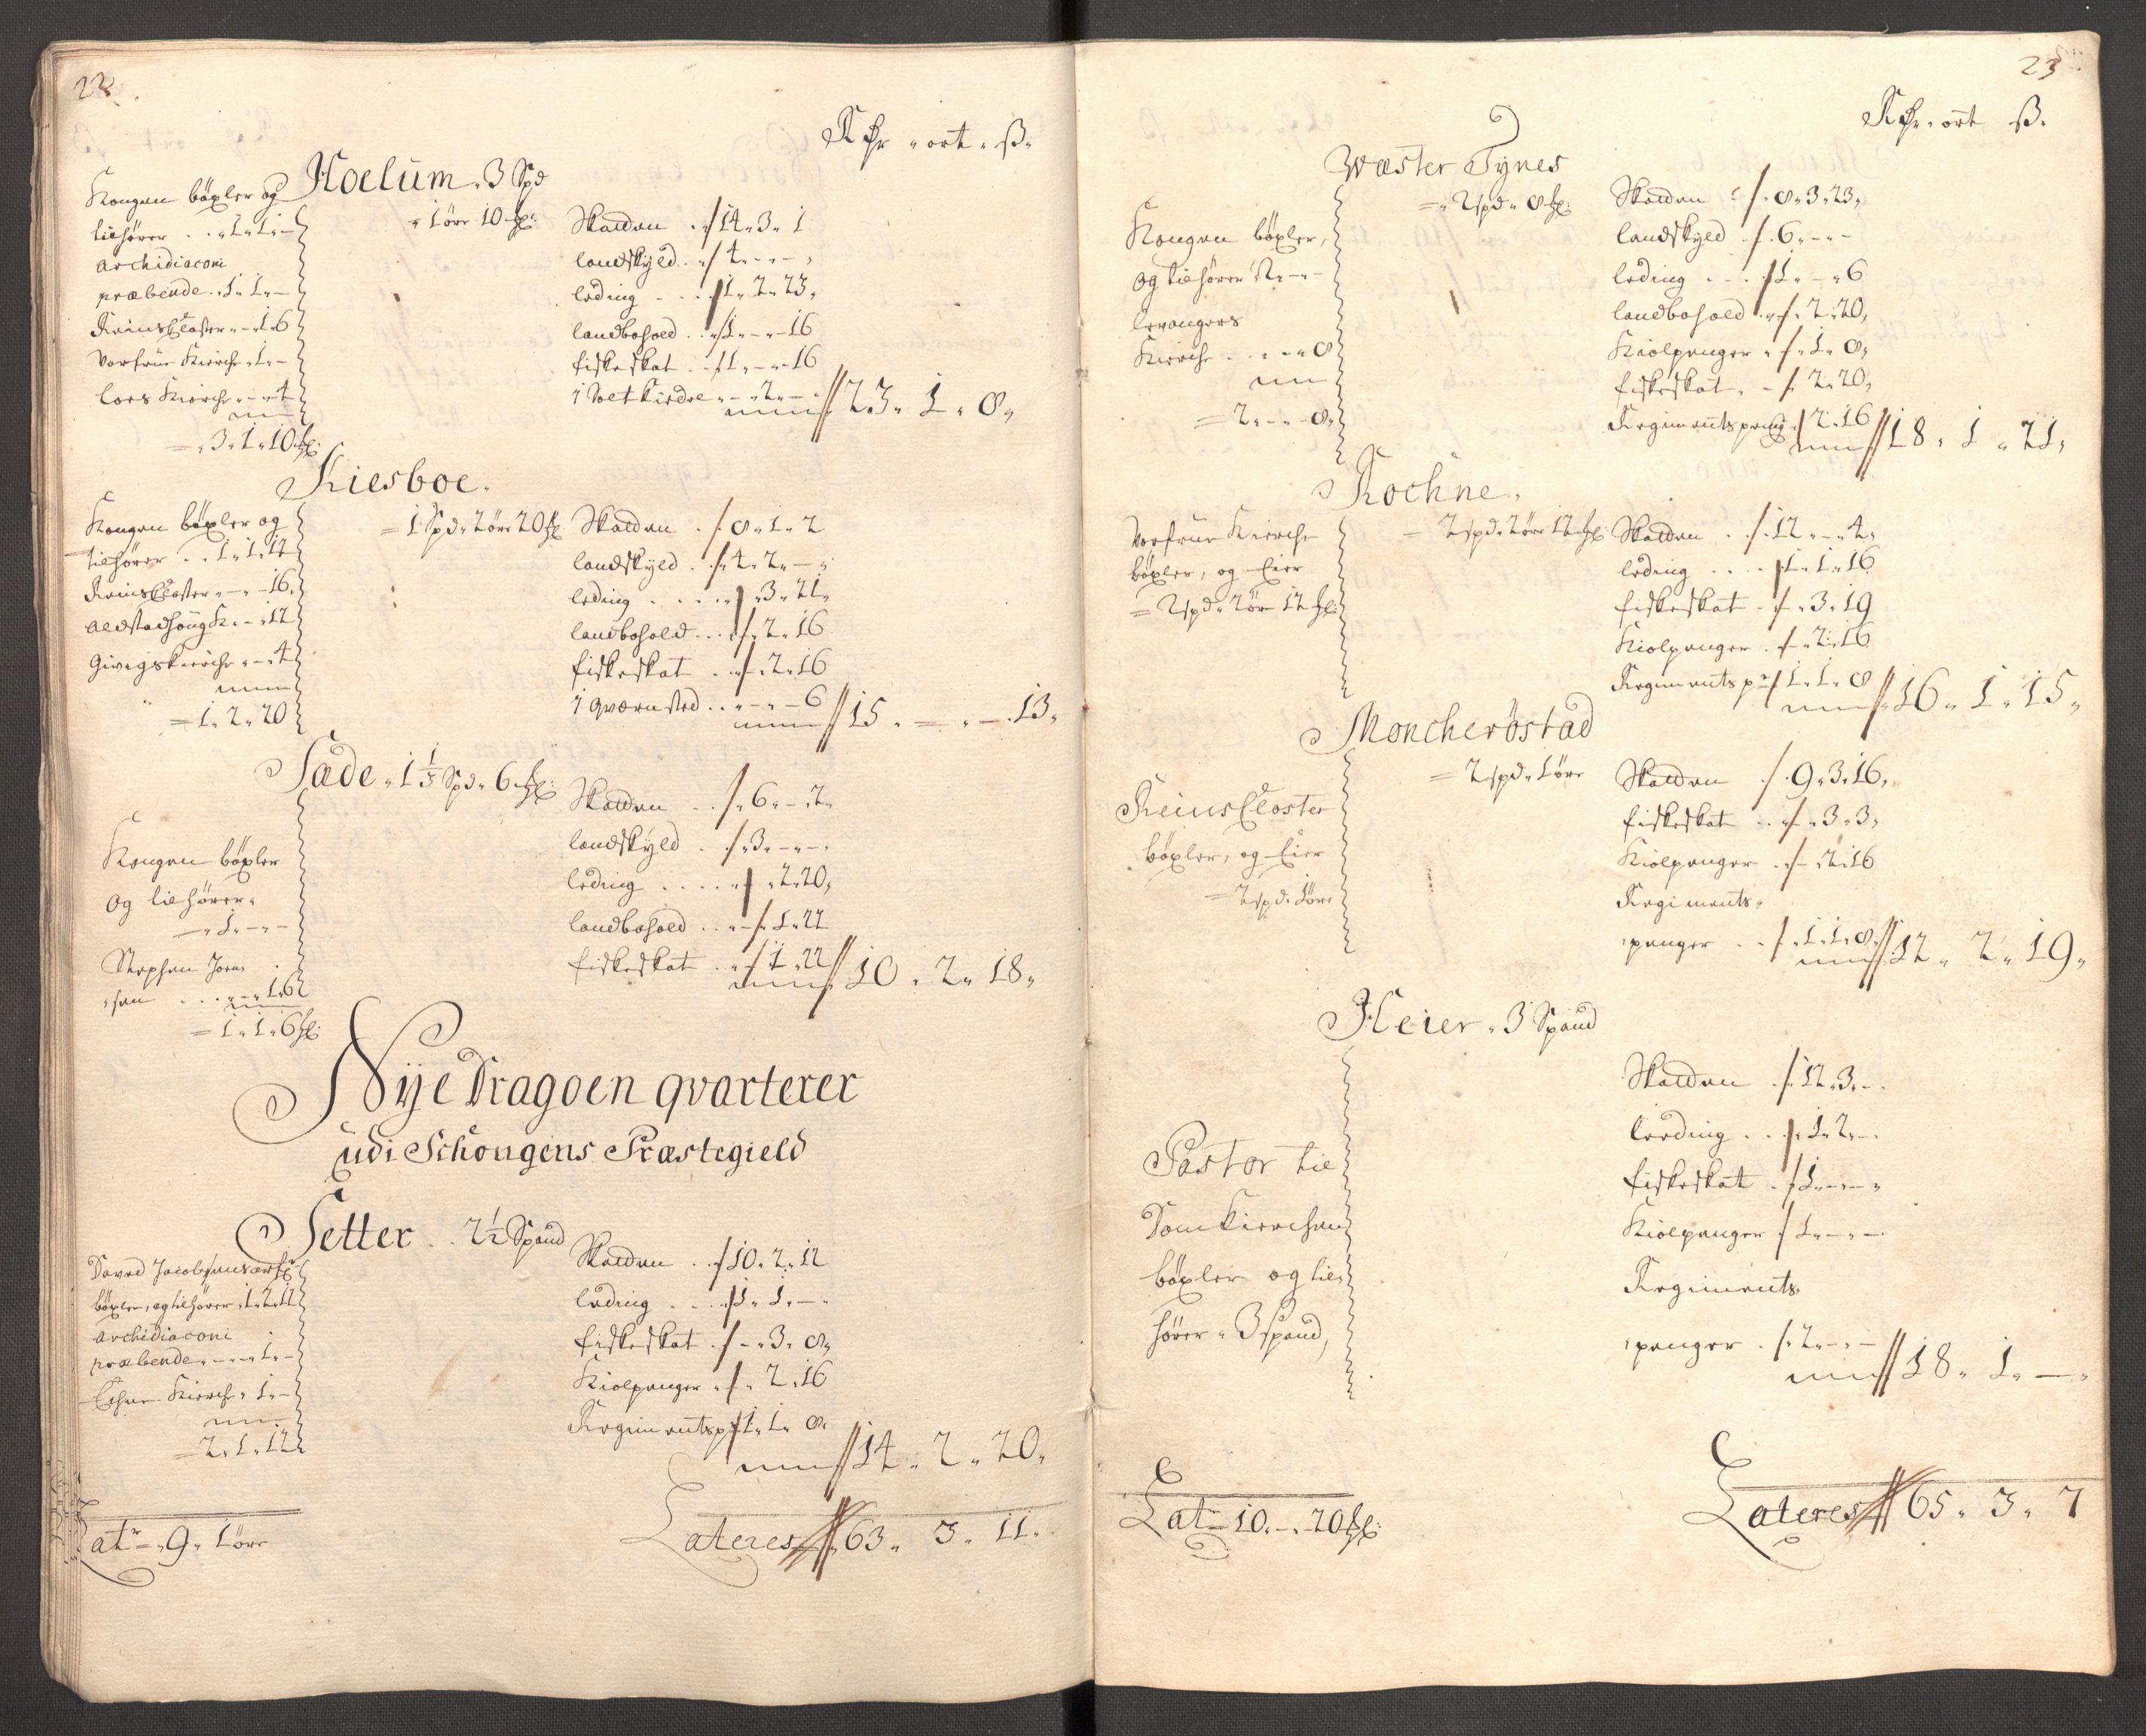 22.
Rdr ort ß
Hoelum 3 Spd
1 öre 10 
Kongen böxler og
tilhörer 1 1 -
Archidiaconi
præbende 1 1 -
Reins Closter - 1 6
Vorfrue Kirche 1 -
Loes Kirche - - 4
= 3 1 10
Skatten 14 3 1
landskyld 4 - -
leding 1 2 23
landbohold 1 - 16
fiskeskat 1 - 16
- 2 -
23 1 8
Riesboe.
= 1 Spd 2 öre 20
Kongen böxler og
tilhörer 1 1 12
Reins Closter - - 16
Aldstadhoug K. - 12
Givigs Kirche - - 4
= 1 2 20
Skatten 8 1 2
landskyld 4 2 -
leding 3 21
landbohold 2 16
fiskeskat 2 16
1 qværnsted - - 6
15 - 13
Sæde 1 1/3 Spd 6
Kongen böxler
og tilhörer
- 1 - -
Stephen Joen
sen - 1 6
= 1 1 6
Skatten 6 - 2
landskyld 3 - -
leding 2 20
landbohold 1 22
fiskeskat 1 22
10 2 18
Nye Dragoen qvarterer
udi Schongens Præstegield
Setter 2 1/2 Spand
böxler, og tilhörer 1 2 12
Archidiaconi
præbende - - 1 -
Kirche 1 -
= 2 1 12
Skatten 10 2 12
leding 1 1 -
fiskeskat - 3 8
Kiolpenger 2 16
Regimentsp 1 1 8
14 2 20
Latr 9 1 öre
Lateres 63 3 11
23
Rdr ort ß
Wæster Tynes
= 2 spd 8
Kongen böxler,
og tilhörer 2 - -
Levangers
Kirche - - 8
= 2 - - 8
Skatten 8 3 23
landskyld 6 - -
leding 1 - 6
landbohold 2 20
Kiolpenger 1 8
fiskeskat 2 20
Regimentspeng 2 16
18 1 21
Rochne
= 2 spd 2 öre 12
Vorfrue Kirche
böxler, og Eier
= 2 spd 2 öre 12
Skatten 12 - 4
leding 1 1 16
fiskeskat 3 19
Kiolpenger 2 16
Regimentsp 1 1 8
16 1 15
Moncheröstad
= 2 spd 1 öre
Reins Closter
böxler, og Eier
= 2 spd 1 öre
Skatten 9 3 16
fiskeskat 3 3
Kiolpenger 2 16
Regiments
penger 1 1 8
12 2 19
Heier 3 Spand
Pastor til
Dom Kirchen
böxler og til
hörer 3 spand,
Skatten 12 3 -
leeding 1 2 -
fiskeskat 1 - -
Kiolpenger 1 - -
Regiments
penger 2 - -
18 1 -
Lat 10 - 20
Lateres 65 3 7